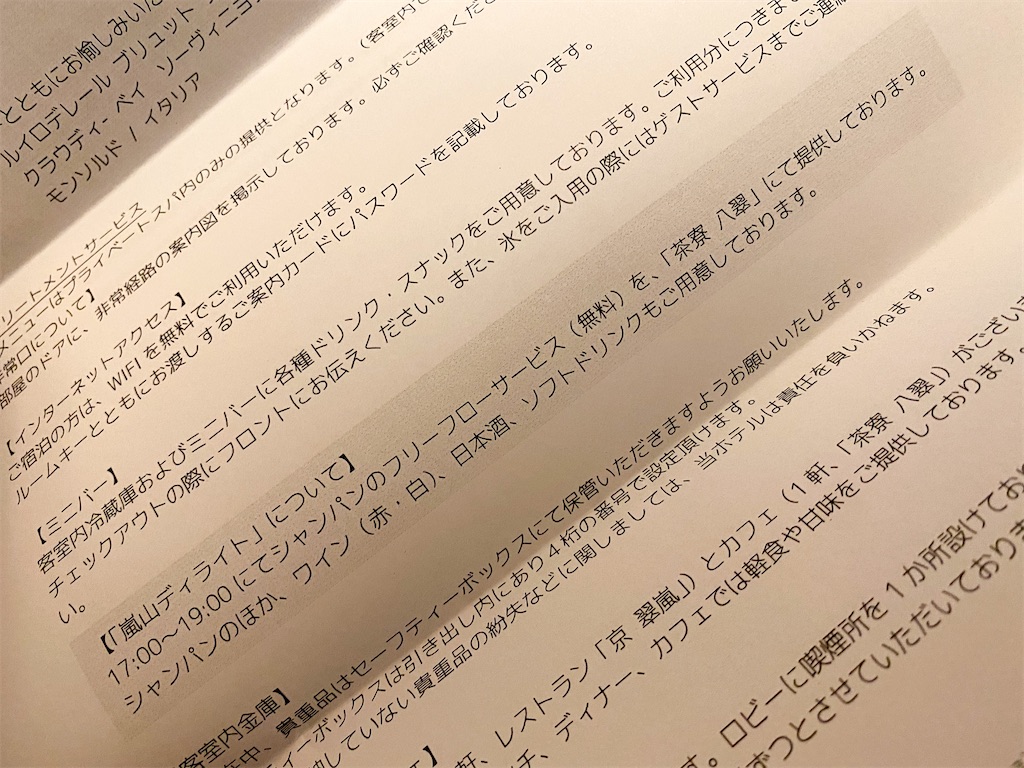 とともにお愉しみいた
ルイロデレール ブリュット
クラウディー ベイ ソーヴィニヨン
モンソルド / イタリア
リートメントサービス
メニューはプライベートスパ内のみの提供となります。（客室内で
非常口について】
部屋のドアに、非常経路の案内図を掲示しております。必ずご確認くださ
【インターネットアクセス】
ご宿泊の方は、WIFI を無料でご利用いただけます。
ルームキーとともにお渡しするご案内カードにパスワードを記載しております。
【ミニバー】
客室内冷蔵庫およびミニバーに各種ドリンク・スナックをご用意しております。ご利用分につきまし
チェックアウトの際にフロントにお伝えください。また、氷をご入用の際にはゲストサービスまでご連絡
い。
【「嵐山ディライト」について】
17:00～19:00 にてシャンパンのフリーフローサービス（無料）を、「茶寮 八翠」にて提供しております。
シャンパンのほか、ワイン（赤・白）、日本酒、ソフトドリンクもご用意しております。
客室内金庫】
在中、貴重品はセーフティーボックスにて保管いただきますようお願いいたします。
ィーボックスは引き出し内にあり 4 桁の番号で設定頂けます。
していない貴重品の紛失などに関しましては、当ホテルは責任を負いかねます。
】
軒、レストラン「京 翠嵐」）とカフェ（1 軒、「茶寮 八翠」）がござい
チ、ディナー、カフェでは軽食や甘味をご提供しております。
す。ロビーに喫煙所を 1 か所設けており
ずつとさせていただいており